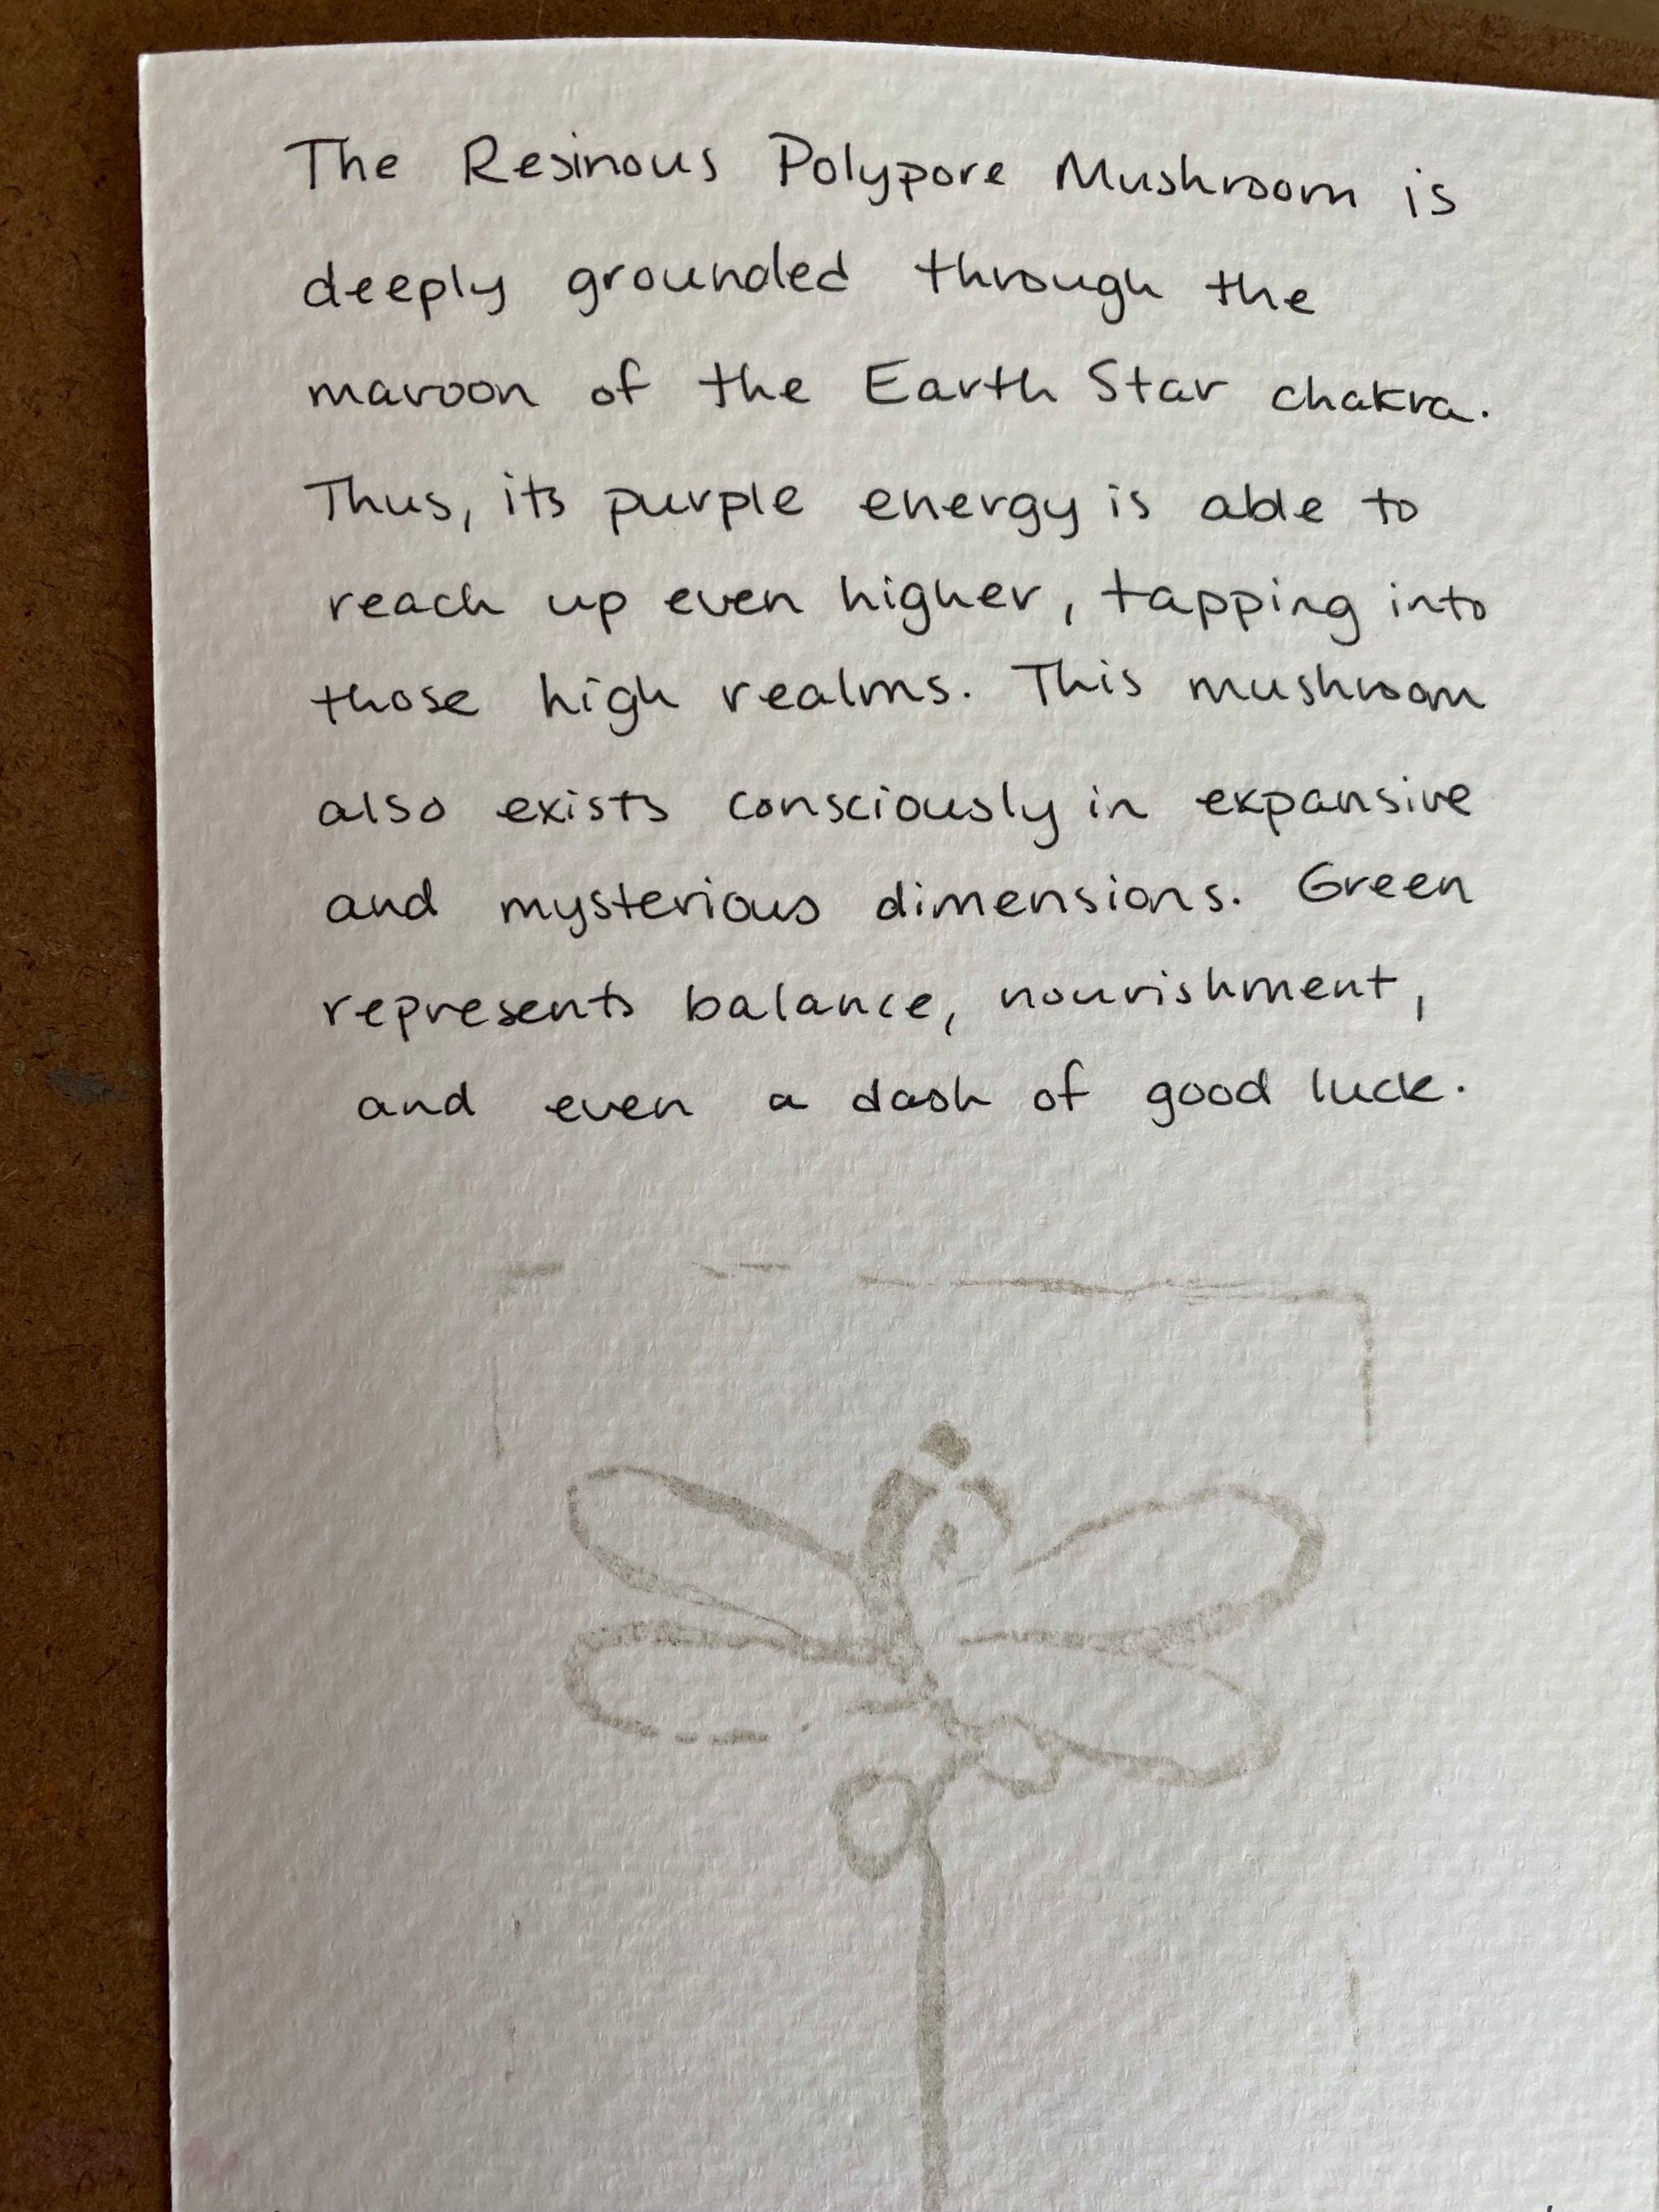 The Resinous Polypore Mushroom is
deeply grounded through the
maroon of the Earth Star chakra.
Thus, its purple energy is able to
reach up even higher, tapping into
those high realms. This mushroom
also exists consciously in expansive
and mysterious dimensions. Green
represents balance, nourishment,
and even a dash of good luck.